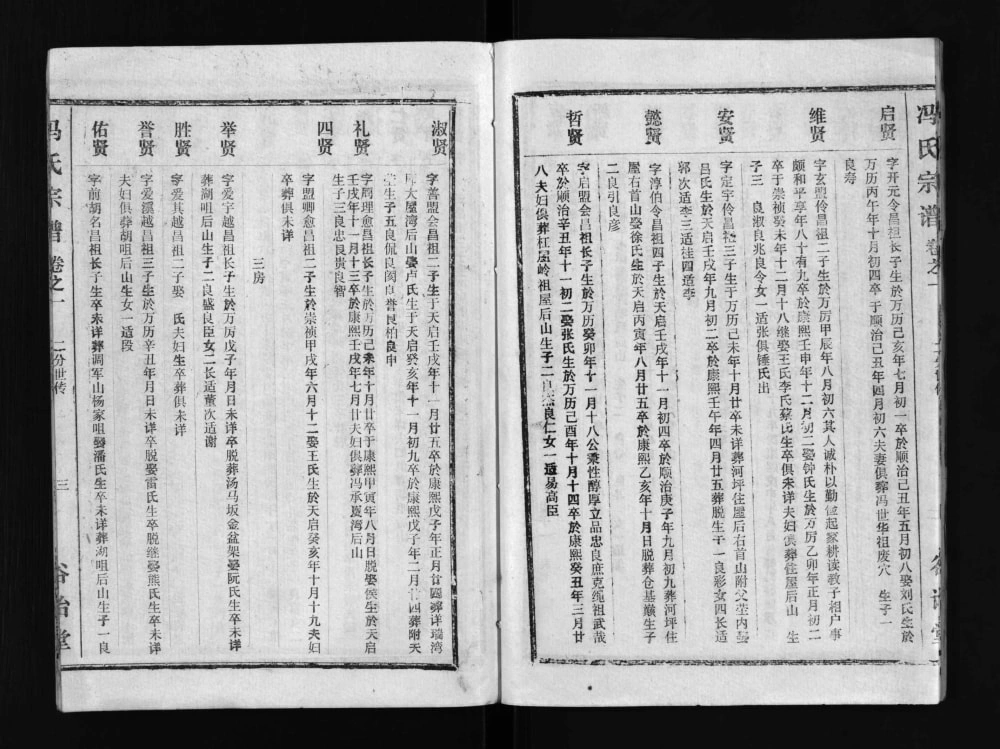 冯氏宗谱 卷之一
启贤
字开元令昌祖长子生於万历己亥年七月初一卒於顺治己丑年五月初八娶刘氏生於
万历丙午年十月初四卒于顺治己丑年四月初六夫妻俱葬冯世华祖废穴 生子一
良寿
维贤
字玄盟伶昌祖二子生於万历甲辰年八月初六其人诚朴以勤俭起家耕读教子相户事
颇和平享年八十有九卒於康熙壬申年十二月初二娶钟氏生於万历乙卯年正月初二
卒于崇祯癸未年十二月十八继娶王氏李氏蔡氏生卒俱未详夫妇俱葬住屋后山 生
子三 良淑良兆良令女一适张俱锤氏出
安贤
字定宇伶昌祖三子生于万历己未年十月廿卒未详葬河坪住屋后右首山附父茔内娶
吕氏生於天启壬戌年九月初二卒於康熙壬午年四月廿五葬脱生子一良彩女四长适
郭次适李三适桂四适李
懿贤
字淳伯令昌祖四子生於天启壬戌年十一月初四卒於顺治庚子年九月初九葬河坪住
屋右首山娶徐氏生於天启丙寅年八月廿五卒於康熙乙亥年十月日脱葬仓基巅生子
二良引良彦
哲贤
字启盟会昌祖长子生於万历癸卯年十一月十八公秉性醇厚立品忠良庶克绳祖武哉
卒於顺治辛丑年十一初二娶张氏生於万历己酉年十月十四卒於康熙癸丑年三月廿
八夫妇俱葬杠屋岭祖屋后山生子二良杰良仁女一适易高臣
淑贤
字善盟会昌祖二子生于天启壬戌年十一月廿五卒於康熙戊子年正月廿四葬详瑞湾
大屋湾后山娶卢氏生于天启癸亥年十一月初九卒於康熙戊子年二月廿四葬附夫
生子五良侃良阅良誉良柏良申
礼贤
字简理愈昌祖长子生於万历己未年十月廿卒于康熙甲寅年八月日脱娶侯氏生於天启
壬戌年十一月十三卒於康熙壬戌年七月廿夫妇俱葬冯承夏湾后山
生子三良忠良贵良智
四贤
字盟卿愈昌祖二子生於崇祯甲戌年六月十二娶王氏生於天启癸亥年十月十九夫妇
卒葬俱未详
三房
举贤
字爱宇越昌祖长子生於万历戊子年月日未详卒脱葬汤马坂金盆架娶阮氏生卒未详
葬湖咀后山生子二良盛良臣女二长适董次适谢
胜贤
字爱其越昌祖二子娶 氏夫妇生卒葬俱未详
誉贤
字爱溪越昌祖三子生於万历辛丑年月日未详卒脱娶雷氏生卒脱继娶熊氏生卒未详
夫妇俱葬胡咀后山生女一适段
佑贤
字前胡名昌祖长子生卒未详葬调军山杨家咀娶潘氏生卒未详葬湖咀后山生子一良
冯氏宗谱 卷之一 二分世传 三